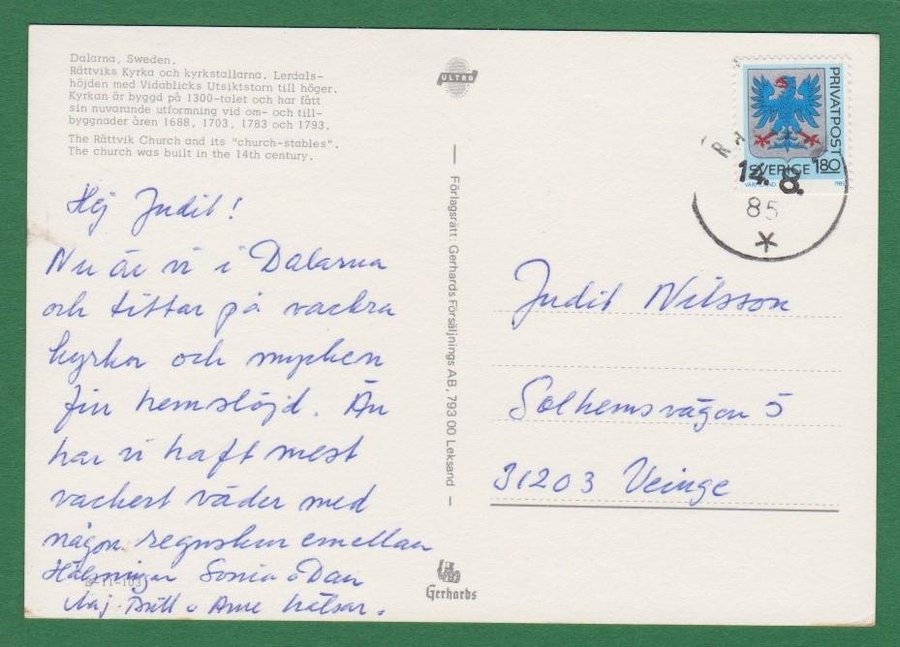 Dalarna, Sweden.
Rättviks Kyrka och kyrkstallarna. Lerdals-
höjden med Vidablicks Utsiktstorn till höger.
Kyrkan är byggd på 1300-talet och har fått
sin nuvarande utformning vid om- och till-
byggnader åren 1688, 1703, 1783 och 1793.
The Rättvik Church and its "church-stables".
The church was built in the 14th century.
Hej Judit!
Nu är vi i Dalarna
och tittar på vackra
kyrkor och mycken
fin hemslöjd. Än
har vi haft mest
vackert väder med
någon regnskur emellan
Hälsningar Sonia o Dan
Maj-Britt o Arne hälsar.
ULTRA
Förlagsrätt: Gerhards Försäljnings AB, 793 00 Leksand
Gerhards
PRIVATPOST
SVERIGE 180
14. 8.
85
Judit Nilsson
Solhemsvägen 5
31203 Veinge